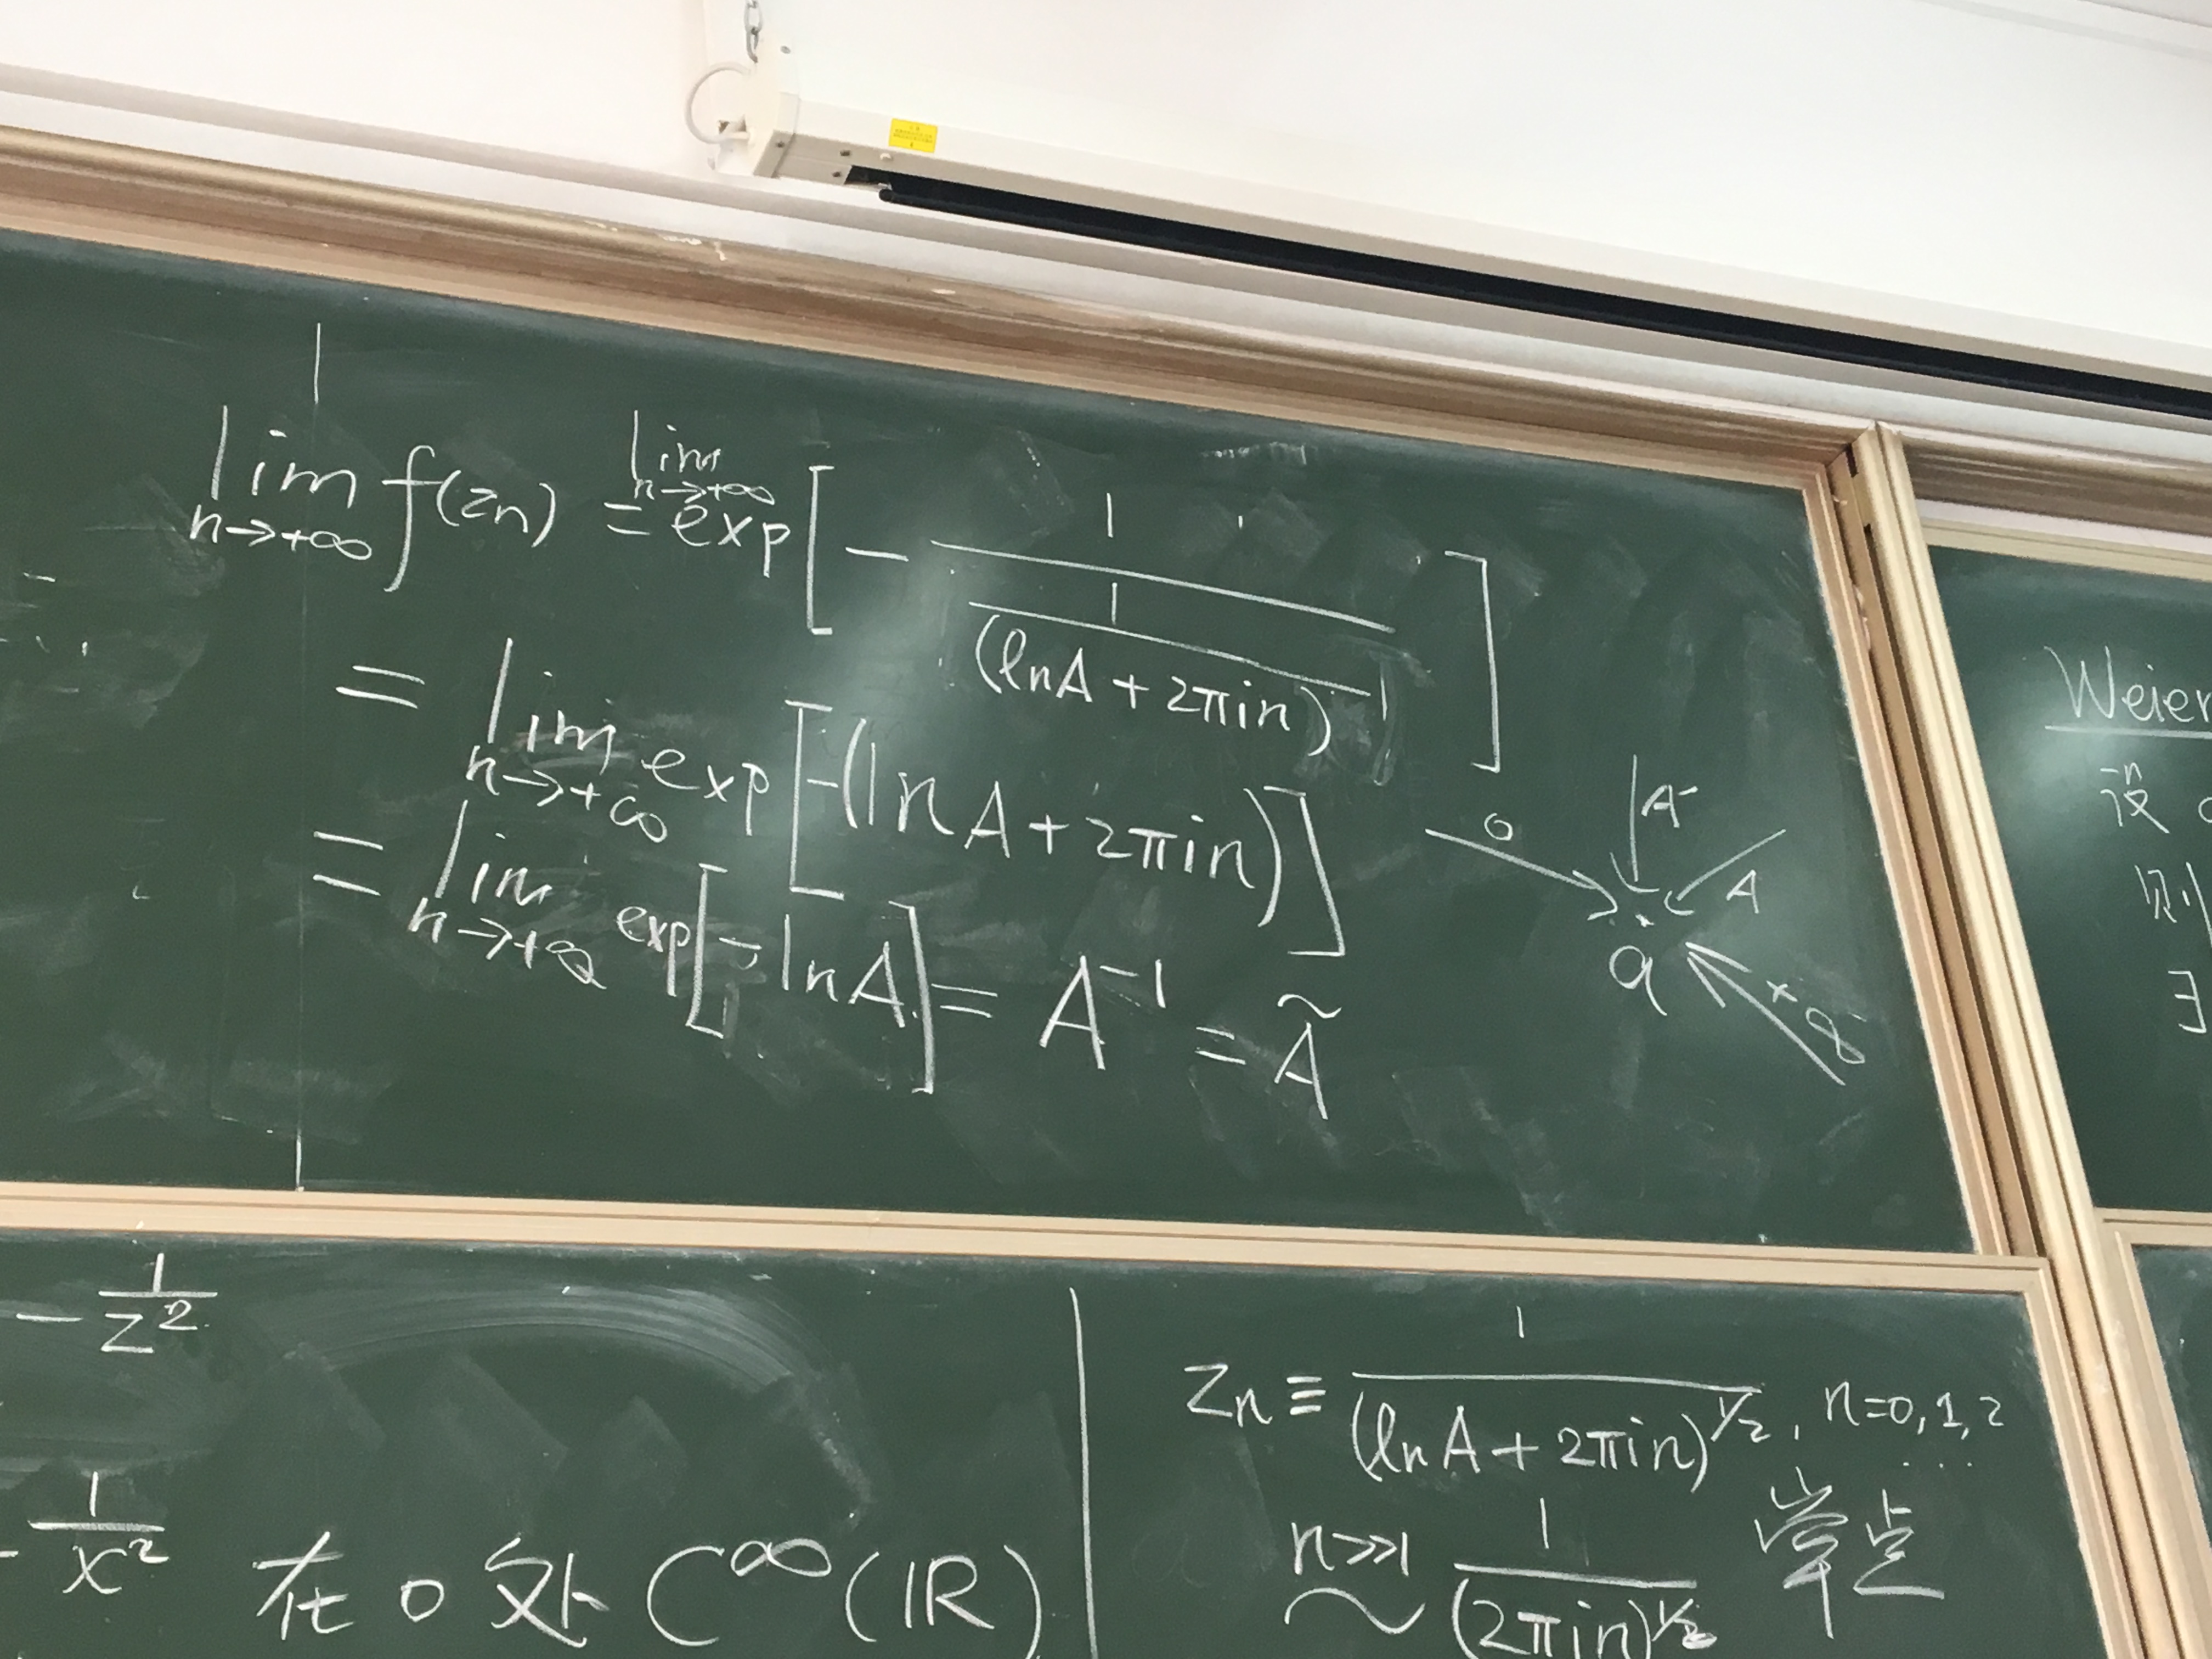 lim f(zn) = lim exp[ - 1 / ( 1 / (lnA + 2πin) ) ]
n→+∞ n→+∞
= lim exp[-(lnA + 2πin)]
n→+∞
= lim exp[-lnA] = A⁻¹ = Ã
n→+∞
0
A
a
∞
Weier
设
则
∃
- 1/z²
- 1/x² 在 0 处 C^∞(ℝ)
Zn ≡ 1/(lnA + 2πin)^½, n=0,1,2
...
n>>1
~ 1/(2πin)^½